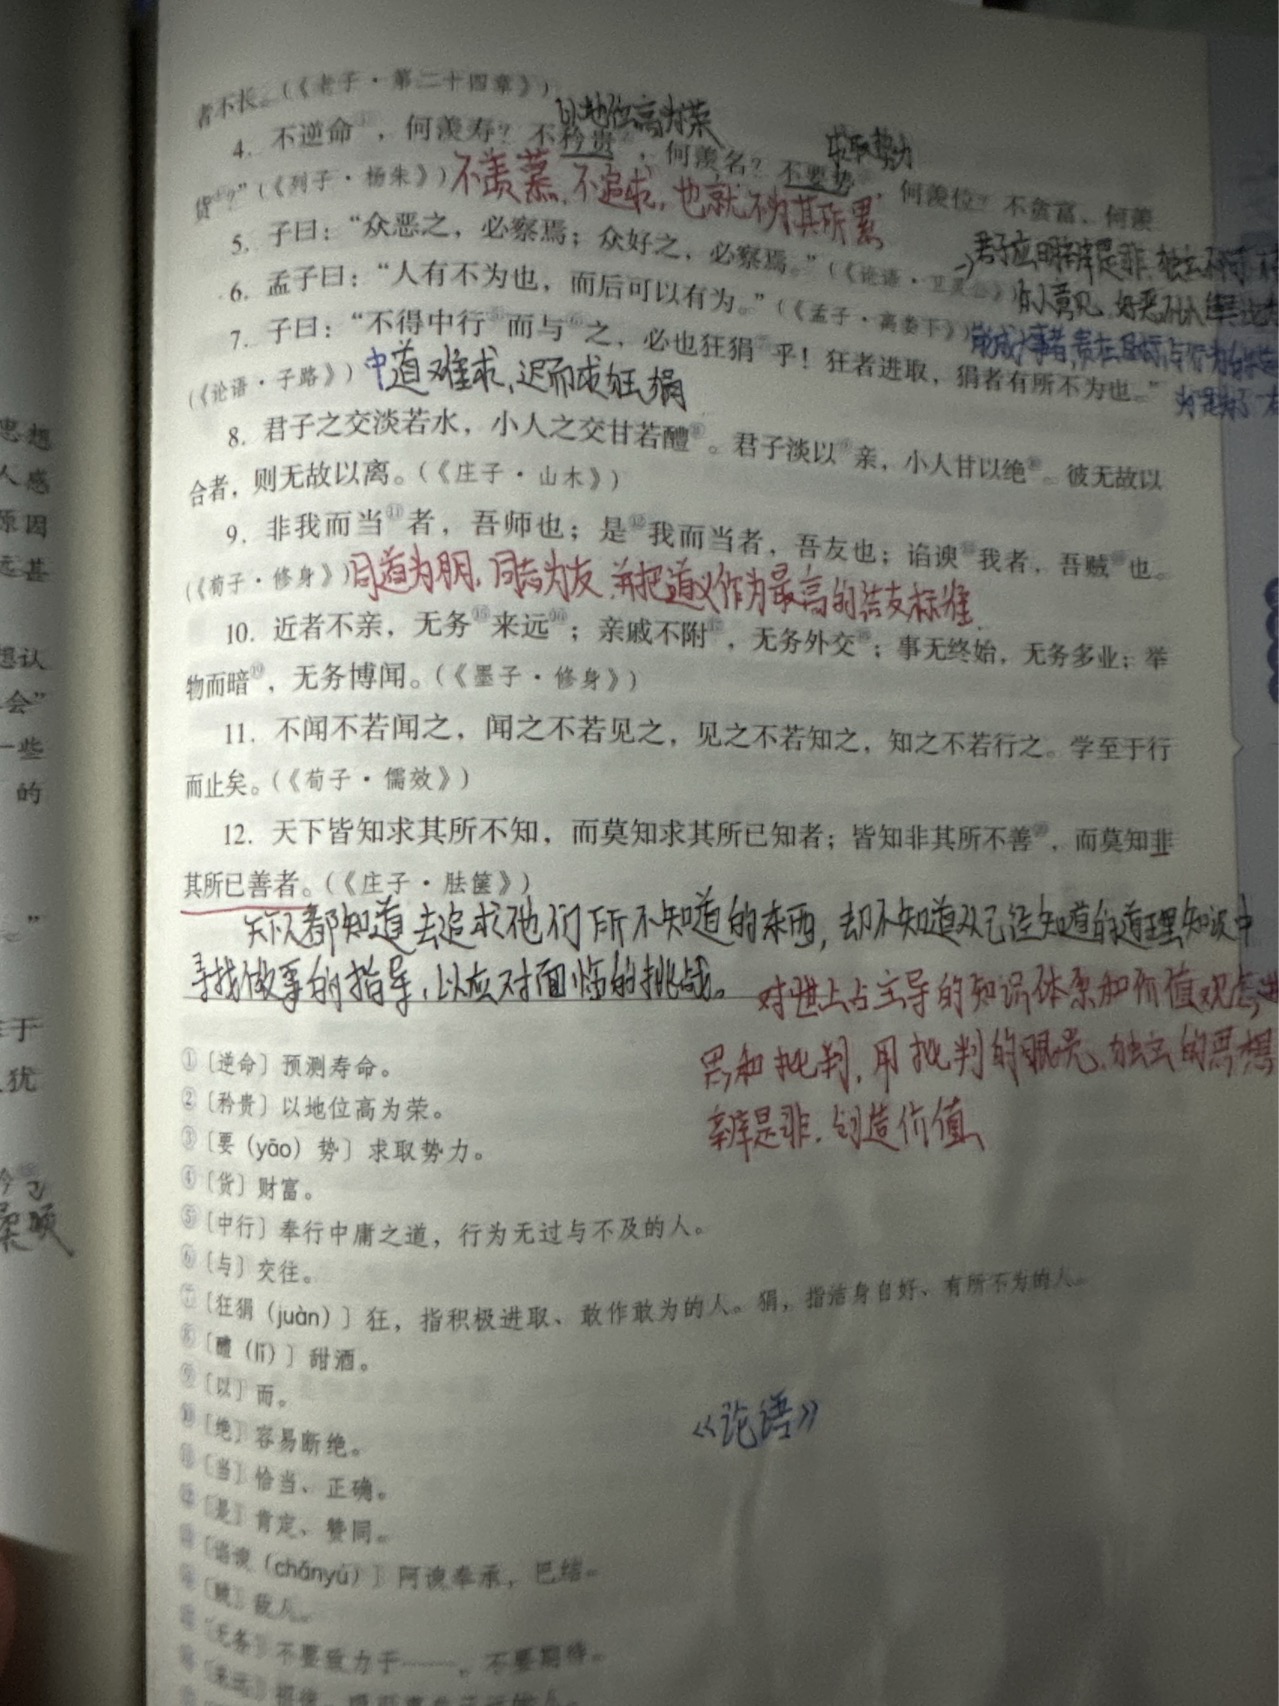 者不长。(《老子·第二十四章》)
以地位高为荣
求取势力
4. 不逆命①，何羡寿？不矜贵②，何羡名？不要势③，何羡位？不贪富，何羡
货④？”(《列子·杨朱》)
不羡慕，不追求，也就不为其所累
5. 子曰：“众恶之，必察焉；众好之，必察焉。”(《论语·卫灵公》)
→君子应明辨是非，独立
6. 孟子曰：“人有不为也，而后可以有为。”(《孟子·离娄下》)
7. 子曰：“不得中行⑤而与⑥之，必也狂狷⑦乎！狂者进取，狷者有所不为也。”
(《论语·子路》)
中道难求，退而求狂狷
8. 君子之交淡若水，小人之交甘若醴⑧。君子淡以⑨亲，小人甘以绝⑩。彼无故以
合者，则无故以离。(《庄子·山木》)
9. 非我而当⑪者，吾师也；是⑫我而当者，吾友也；谄谀⑬我者，吾贼⑭也。
(《荀子·修身》)
同道为朋，同志为友，并把道义作为最高的结友标准
10. 近者不亲，无务⑮来远⑯；亲戚不附⑰，无务外交⑱；事无终始，无务多业；举
物而暗⑲，无务博闻。(《墨子·修身》)
11. 不闻不若闻之，闻之不若见之，见之不若知之，知之不若行之。学至于行
而止矣。(《荀子·儒效》)
12. 天下皆知求其所不知，而莫知求其所已知者；皆知非其所不善⑳，而莫知非
其所已善者。(《庄子·胠箧》)
天下人都知道去追求他们所不知道的东西，却不知道从已经知道的道理知识中
寻找做事的指导，以应对面临的挑战。
对世上占主导的知识体系和价值观念进
思和批判，用批判的眼光、独立的思想
辨是非，创造价值
①〔逆命〕预测寿命。
②〔矜贵〕以地位高为荣。
③〔要（yāo）势〕求取势力。
④〔货〕财富。
⑤〔中行〕奉行中庸之道，行为无过与不及的人。
⑥〔与〕交往。
⑦〔狂狷（juàn）〕狂，指积极进取、敢作敢为的人。狷，指洁身自好、有所不为的人。
⑧〔醴（lǐ）〕甜酒。
⑨〔以〕而。
⑩〔绝〕容易断绝。
⑪〔当〕恰当、正确。
⑫〔是〕肯定、赞同。
⑬〔谄谀（chǎnyú）〕阿谀奉承，巴结。
⑭〔贼〕敌人。
⑮〔无务〕不要致力于……，不要期待。
⑯〔来远〕招徕
《论语》
思想
人感
原因
远甚
想认
会”
一些
的
”
于
犹